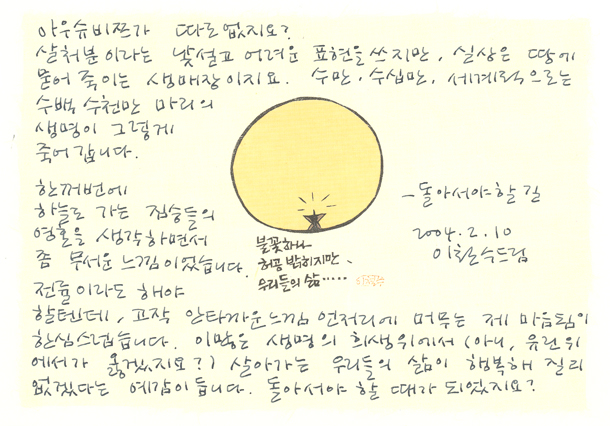 아우슈비쯔가 따로 없지요?
살처분이라는 낯설고 어려운 표현을 쓰지만, 실상은 땅에
묻어 죽이는 생매장이지요. 수만, 수십만, 세계적으로는
수백 수천만 마리의
생명이 그렇게
죽어갑니다.
한꺼번에
하늘로 가는 짐승들의
영혼을 생각하면서
좀 무서운 느낌이었습니다.
전율이라도 해야
할텐데, 고작 안타까운 느낌 언저리에 머무는 제 마음됨이
한심스럽습니다. 이많은 생명의 희생위에서 (아니, 유린위
에서가 옳겠지요?) 살아가는 우리들의 삶이 행복해 질리
없겠다는 예감이 듭니다. 돌아서야 할 때가 되었지요?
불꽃하나
허공 밝히지만,
우리들의 삶.....
- 돌아서야 할 길
2004. 2. 10
이철수드림